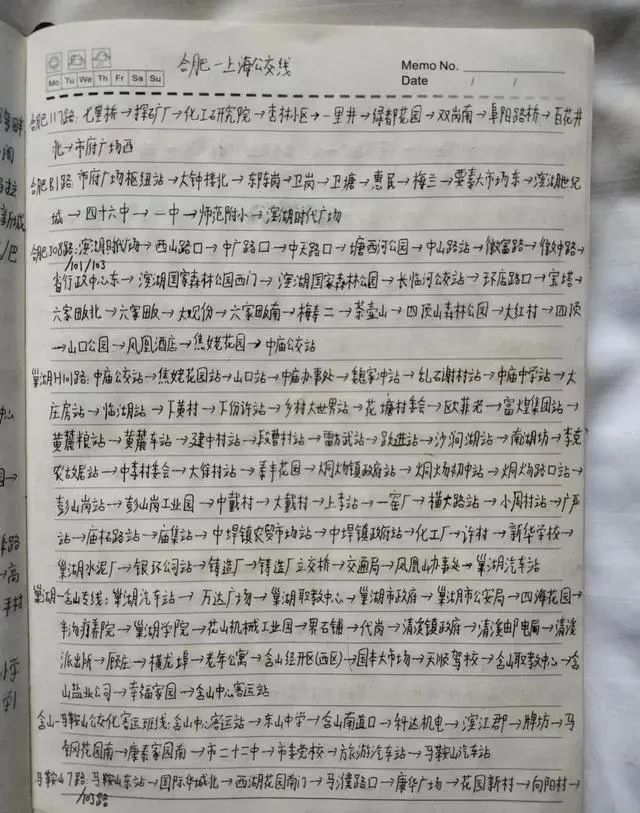 合肥—上海公交线
Memo No.
Mo Tu We Th Fr Sa Su
Date / /
合肥117路: 七里桥→探矿厂→化工研究院→杏林小区→一里井→绿都花园→双岗南→阜阳路桥→百花井
北→市府广场西
合肥B1路: 市府广场枢纽站→大钟楼北→东陈岗→卫岗→卫塘→惠民→梅兰→要素大市场东→滨湖世纪
城→四十六中→一中→师范附小→滨湖时代广场
合肥508路: 滨湖时代广场→西山路口→中广路口→中天路口→塘西河公园→中山路站→徽富路→徽州路→
/101/103
省行政中心东→滨湖国家森林公园西门→滨湖国家森林公园→长临河公交站→环店路口→宝塔→
六家畈北→六家畈→大吴份→六家畈南→梅寿二→茶壶山→四顶山森林公园→大红村→四顶
→山口公园→凤凰酒店→焦姥花园→中庙公交站
巢湖H101路: 中庙公交站→焦姥花园站→山口站→中庙办事处→魏家冲站→乱石谢村站→中庙中学站→大
庄房站→临湖站→下黄村→下份许站→乡村大世界站→花塘村委会→欧菲老→富煌集团站→
黄麓粮站→黄麓车站→建中村站→段曹村站→雷方武站→跃进站→沙涧湖站→南湖坊→李克
农故居站→中李村委会→大隹村站→泰丰花园→烔炀镇政府站→烔炀初中站→烔炀路口站→
彭山岗站→彭山岗工业园→中戴村→大戴村→上李站→一窑厂→横大路站→小周村站→广严
站→庙柘路站→庙集站→中垾镇农贸市场站→中垾镇政府站→化工厂→许村→新华学校→
巢湖水泥厂→银环公司站→铸造厂→铸造厂立交桥→交通局→凤凰山办事处→巢湖汽车站
巢湖-含山专线: 巢湖汽车站→万达广场→巢湖职教中心→巢湖市政府→巢湖市公安局→四海花园→
半汤疗养院→巢湖学院→花山机械工业园→界石铺→代岗→清溪镇政府→清溪邮电局→清溪
派出所→顾庄→横龙埠→老年公寓→含山经开区(西区)→国本大市场→天顺驾校→含山职教中心→含
山盐业公司→幸福家园→含山中心客运站
含山-马鞍山公交化客运班线: 含山中心客运站→东山中学→含山南道口→科达机电→滨江郡→牌坊→马
钢花园南→康泰家园南→市二十二中→市委党校→旅游汽车站→马鞍山汽车站
马鞍山7路: 马鞍山东站→国际华城北→西湖花园南门→马濮路口→康华广场→花园新村→向阳村→
/103路